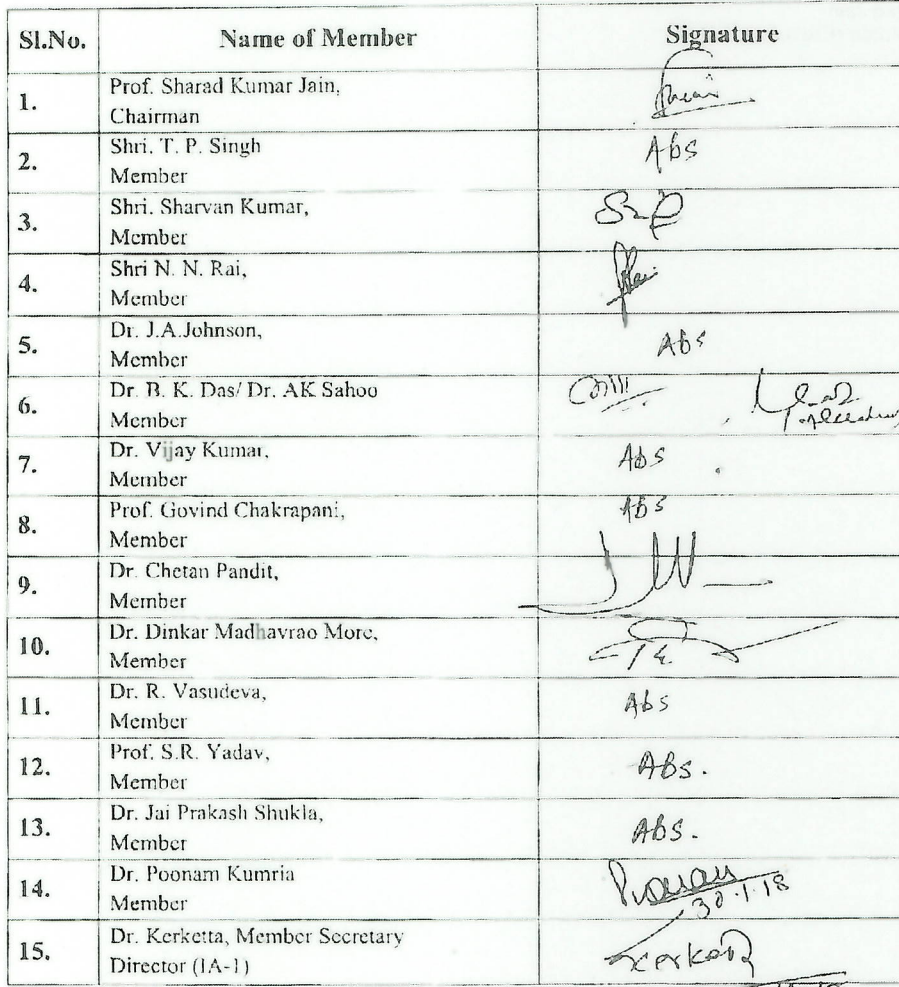 Sl.No. Name of Member Signature
1. Prof. Sharad Kumar Jain,
Chairman
2. Shri. T. P. Singh Abs
Member
3. Shri. Sharvan Kumar,
Member
4. Shri N. N. Rai,
Member
5. Dr. J.A.Johnson, Abs
Member
6. Dr. B. K. Das/ Dr. AK Sahoo
Member
7. Dr. Vijay Kumar, Abs
Member
8. Prof. Govind Chakrapani, Abs
Member
9. Dr. Chetan Pandit,
Member
10. Dr. Dinkar Madhavrao More,
Member
11. Dr. R. Vasudeva, Abs
Member
12. Prof. S.R. Yadav, Abs.
Member
13. Dr. Jai Prakash Shukla, Abs.
Member
14. Dr. Poonam Kumria Poonam
Member 30.1.18
15. Dr. Kerketta, Member Secretary Kerketta
Director (IA-1)